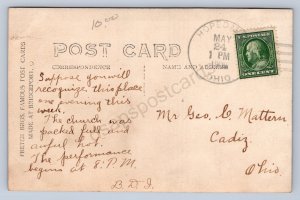 10.00
POST CARD
CORRESPONDENCE
NAME AND ADDRESS
HOPEDALE
MAY
24
1 PM
OHIO
U.S. POSTAGE
ONE CENT
Suppose you will
recognize this place
one evening this
week.
The church was
packed full and
awful hot.
The performance
begins at 8: P.M.
B.D.J.
Mr Geo, C. Mattern
Cadiz,
Ohio.
FAMOUS POST CARDS
MADE AT BRIDGEPORT, O.